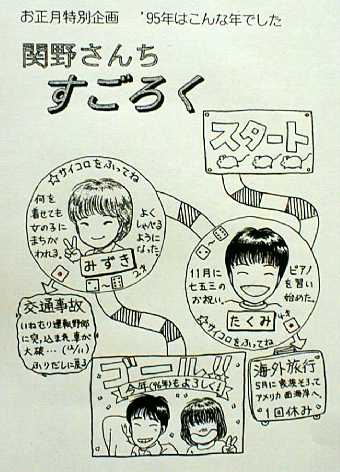 お正月特別企画 '95年はこんな年でした
関野さんち
すごろく
スタート
☆サイコロをふってね
何を
着せても
女の子に
まちが
われる。
よく
しゃべる
ように
なった。
みずき
2才
11月に
七五三の
お祝い。
ピアノ
を習い
始めた。
たくみ
☆サイコロをふってね
交通事故
いねむり運転野郎
に突っ込まれ、車が
大破…(12/11)
ふりだしに戻る
海外旅行
5月に家族そろって
アメリカ西海岸へ。
1回休み
ゴール!!
今年('96年)もよろしく!